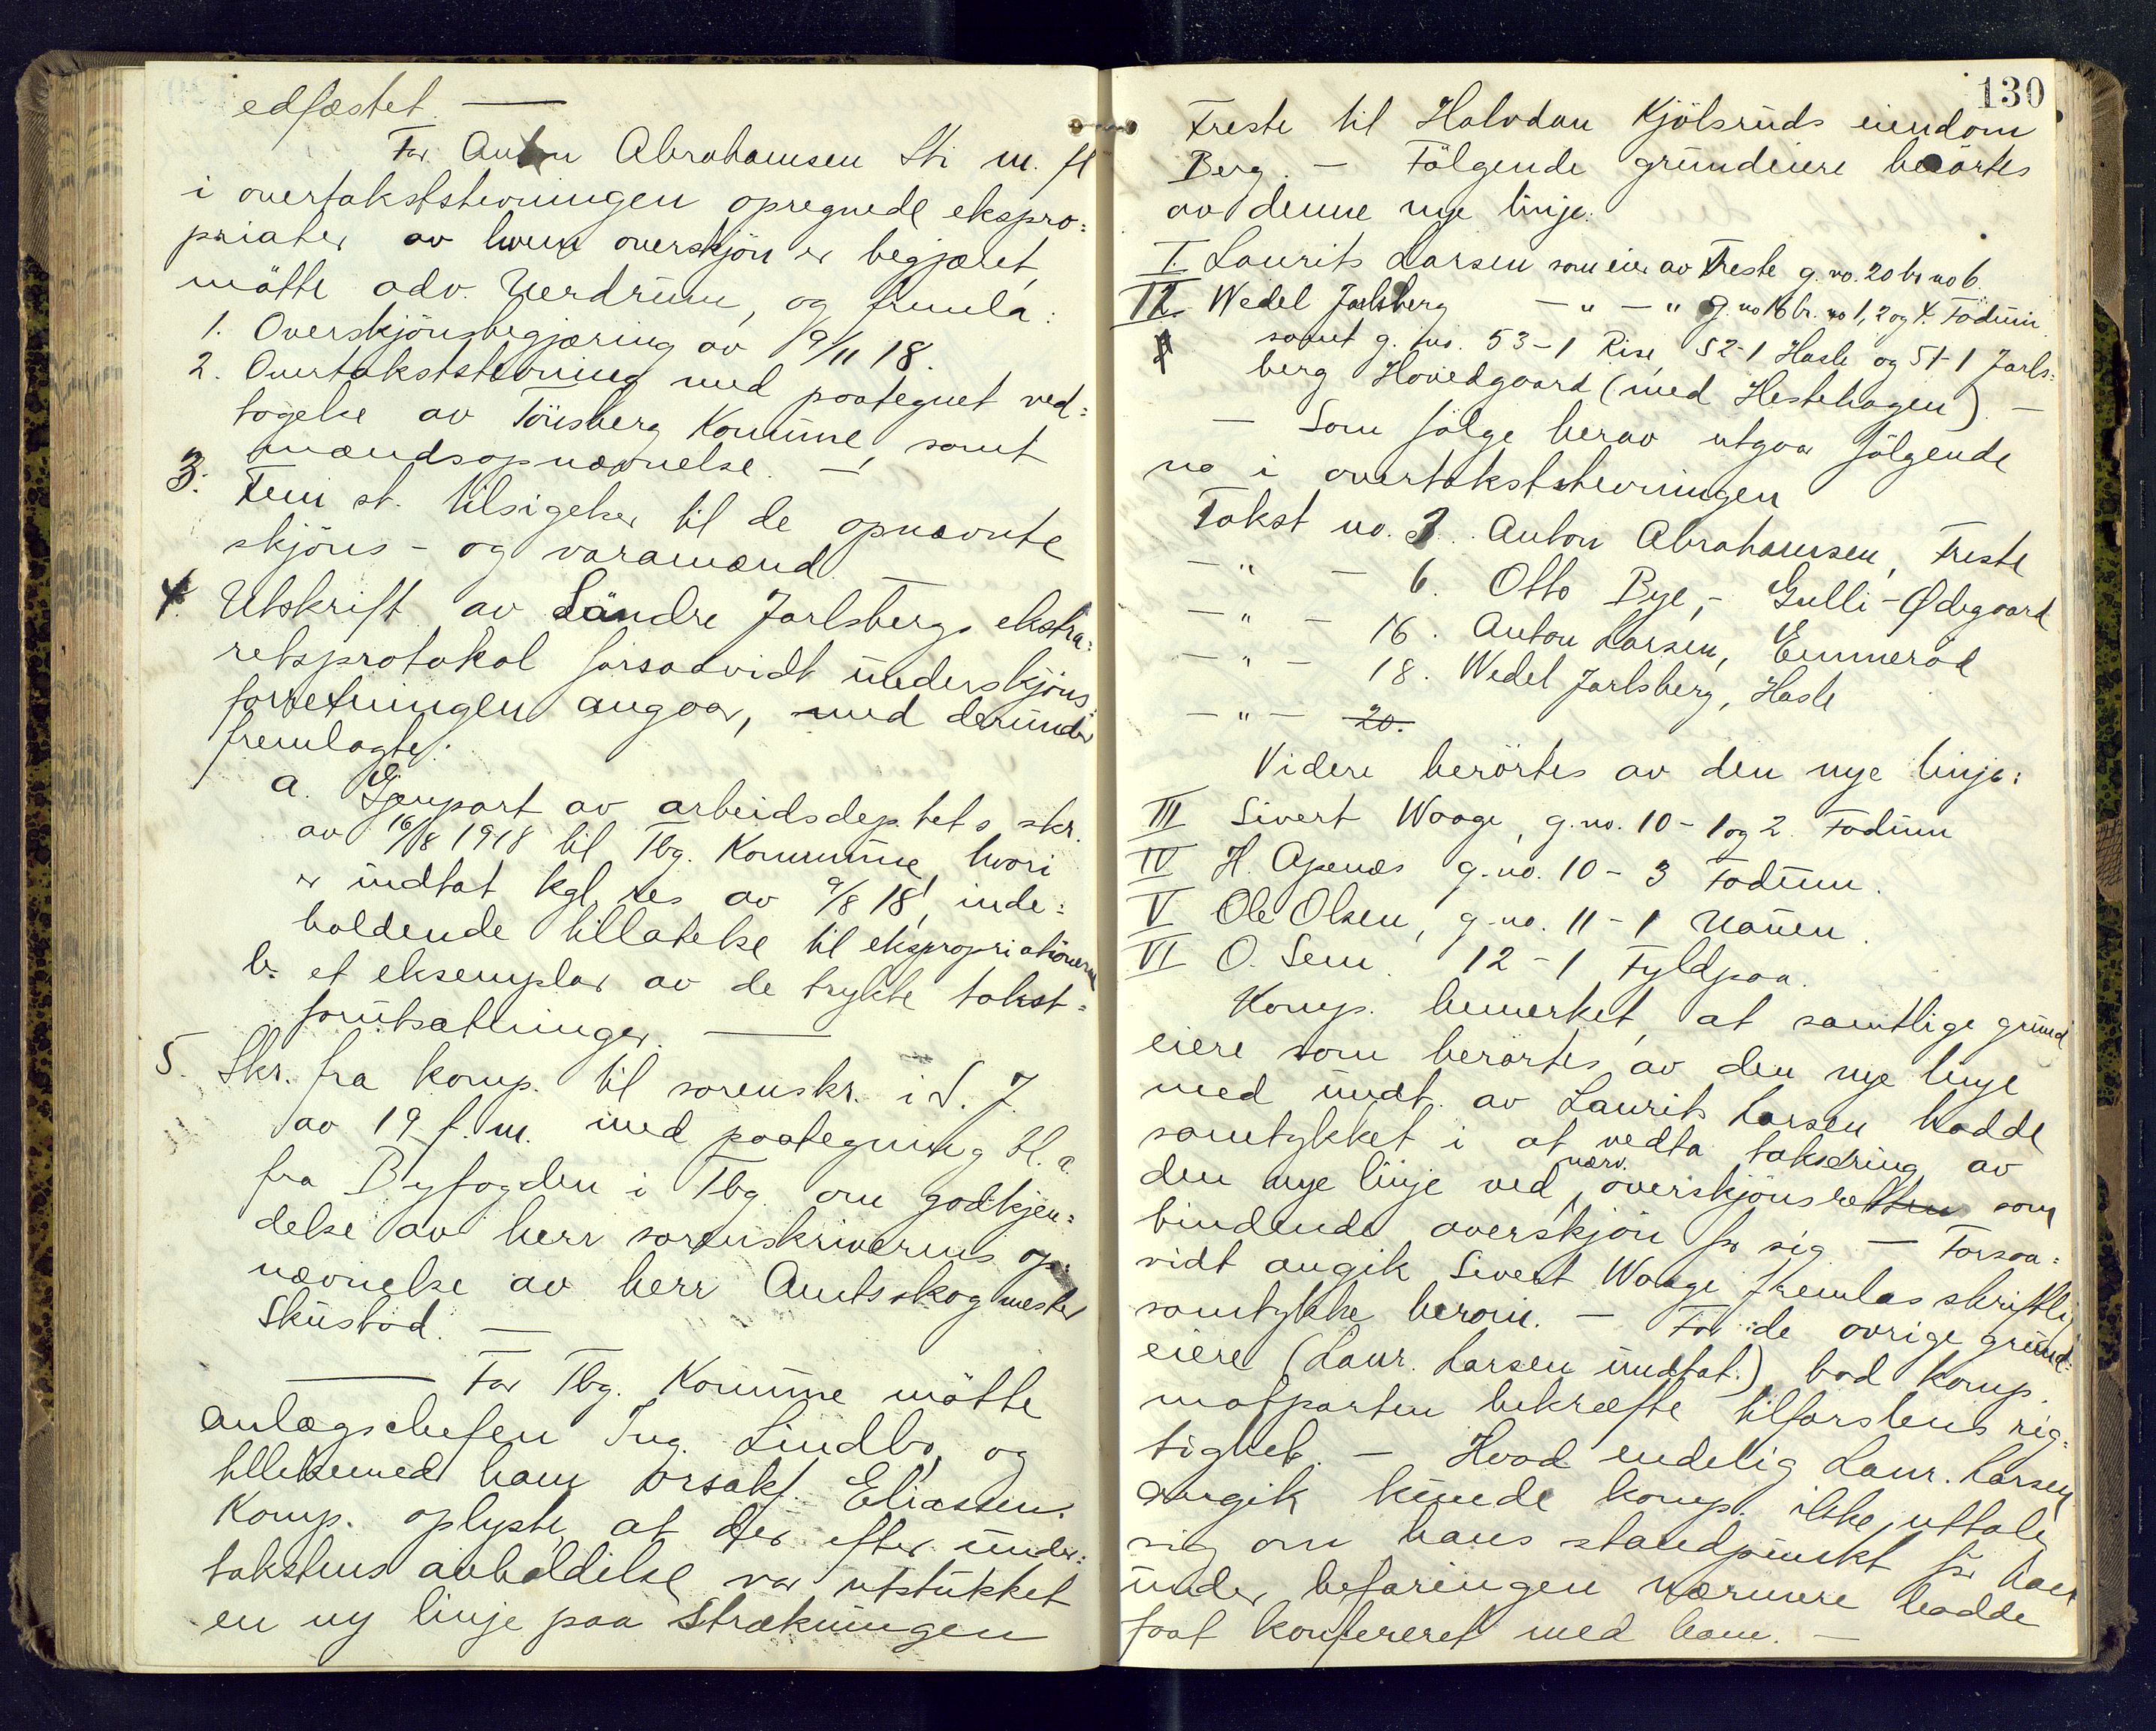 edfæstet. —
For Anton Abrahamsen Sti m. fl
i overtakststevningen opregnede ekspro-
priater av hvem overskjøn er begjæret,
møtte adv. Uerdrum, og fremla:
1. Overskjønsbegjæring av 19/11 18.
2. Overtakststevning med paategnet ved-
tagelse av Tønsberg Kommune, samt
mændsopnævnelse. —
3. Fem st. tilsigelser til de opnævnte
skjøns- og varamænd. —
4. Utskrift av Søndre Jarlsbergs ekstra-
retsprotokol forsaavidt underskjøns-
forretningen angaar, med derunder
fremlagte:
a. Gjenpart av arbeidsdeptets skr.
av 16/8 1918 til Tbg. Kommune, hvori
er indtat kgl. res av 9/8 18, inde-
holdende tillatelse til ekspropriationen
b. et eksemplar av de trykte takst-
forutsætninger. —
5. Skr. fra komp. til sorenskr. i S. J.
av 19 f. m. med paategning bl. a.
fra Byfogden i Tbg. om godkjen-
delse av herr sorenskriverens op-
nævnelse av herr Amtsskogmester
Skustad. —
— For Tbg. Komune møtte
anlægschefen Ing. Lindbo, og
tillikemed ham orsakf. Eliassen.
Komp. oplyste, at der efter under-
takstens avholdelse var utstukket
en ny linje paa Strækningen
130
Freste til Halvdan Kjølsruds eiendom
Berg. — Følgende grundeiere berørtes
av denne nye linje:
I. Laurits Larsen som eier av Freste g. no. 20 br no 6.
II. Wedel Jarlsberg — " — " g. no 16 br. no 1, 2 og 4. Fadum
samt g. no. 53-1 Rise, 52-1 Hasle og 51-1 Jarls-
berg Hovedgaard (med Hestehagen) —
— Som følge herav utgaar følgende
no i overtakststevningen
Takst no. 3. Anton Abrahamsen, Freste
— " — 6. Otto Bye, - Gulli-Ødegaard
— " — 16. Anton Larsen, Emmerød
— " — 18. Wedel Jarlsberg, Hasle
— " — 20.
Videre berørtes av den nye linje:
III Sivert Waage, g. no. 10 - 1 og 2. Fadum
IV H. Apenæs g. no. 10 - 3 Fadum.
V Ole Olsen, g. no. 11 - 1 Nauen.
VI O. Sem. 12 - 1 Fyldpaa.
Komp. bemerket, at samtlige grund
eiere som berørtes av den nye linje
med undt. av Laurits Larsen hadde
samtykket i at vedta taksering av
den nye linje ved nærv. overskjønsretten som
bindende overskjøn for sig. — Forsaa-
vidt angik Sivert Waage fremlas skriftlig
samtykke herom. — For de øvrige grund-
eiere (Laur. Larsen undtat.) bad komp.
motparten bekræfte tilførslens rig-
tighet. — Hvad endelig Laur. Larsen
angik kunde komp. ikke uttale
sig om hans standpunkt før han
under befaringen nærmere hadde
faat konfereret med ham. —